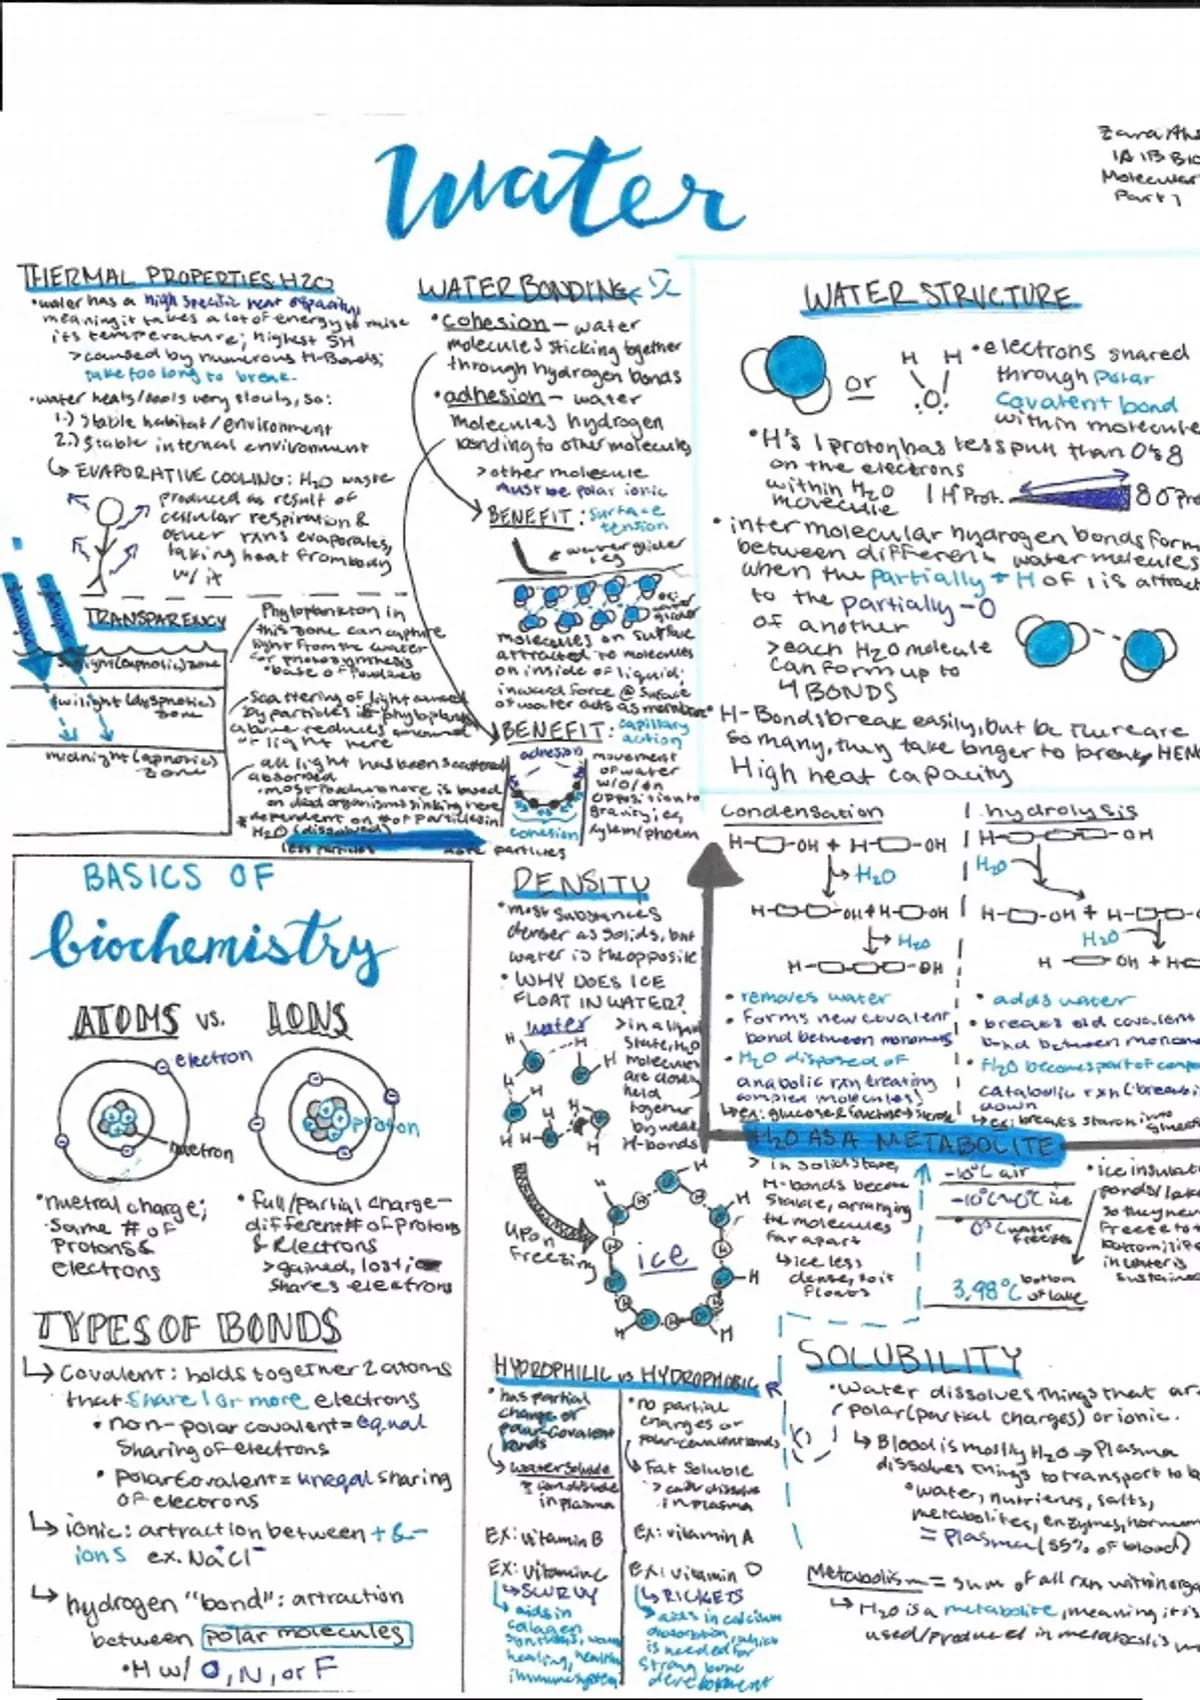 water
Zara Ahs
IA IB Bio
Molecular
Part 1
THERMAL PROPERTIES: H2O
•water has a high specific heat capacity,
meaning it takes a lot of energy to raise
its temperature; highest SH
>caused by numerous H-Bonds;
take too long to break.
•water heats/cools very slowly, so:
1.) stable habitat/environment
2.) stable internal environment
↳ EVAPORATIVE COOLING: H2O waste
produced as result of
cellular respiration &
other rxns evaporates,
taking heat from body
w/ it
TRANSPARENCY
sunlight
sunlight (aphotic) zone
twilight (dysphotic)
zone
midnight (aphotic)
zone
Phytoplankton in
this zone can capture
light from the water
for photosynthesis
•base of foodweb
Scattering of light caused
by particles & phyto
above reduces amount
of light here
all light has been scattered
absorbed
•most food here is based
on dead organisms sinking here
* dependent on # of particles in
H2O (dissolved)
less particles
more particles
WATER BONDING
•cohesion - water
molecules sticking together
through hydrogen bonds
•adhesion - water
molecules hydrogen
bonding to other molecules
>other molecule
must be polar ionic
BENEFIT: surface
tension
water glider
leg
molecules on surface
attracted to molecules
on inside of liquid;
inward force @ surface
of water acts as membrane
BENEFIT: capillary
action
adhesion
cohesion
movement
of water
w/o/on
opposition to
gravity, eg
xylem/phloem
WATER STRUCTURE
or
H H
O
•electrons shared
through polar
covalent bond
within molecule
•H's 1 proton has less pull than O's 8
on the electrons
within H2O
molecule
1 H Prot.
8 O Prot
•intermolecular hydrogen bonds form
between different water molecules
when the partially + H of 1 is attract
to the partially -O
of another
>each H2O molecule
can form up to
4 BONDS
•H-Bonds break easily, but bc there are
so many, they take longer to break, HEN
High heat capacity
Condensation
H-OH + H-OH
H2O
H-OH + H-OH
H2O
H-OH
•removes water
•Forms new covalent
bond between monomers
•H2O disposed of
anabolic rxn (creating
complex molecules)
↳ ex: glucose & fructose → sucrose
hydrolysis
H-OH
H2O
H-OH + H-
H2O
H OH + H
•adds water
•breaks old covalent
bond between monom
•H2O becomes part of comp
catabolic rxn (breaki
down
↳ ex: breaks starch into
glucose
H2O AS A METABOLITE
BASICS OF
biochemistry
ATOMS vs. IONS
electron
neutron
proton
•nuetral charge;
same # of
Protons &
electrons
•full/partial charge-
different # of protons
& electrons
>gained, lost, or
shares electrons
TYPES OF BONDS
↳ Covalent: holds together 2 atoms
that share 1 or more electrons
•non-polar covalent = equal
sharing of electrons
•polar covalent = unequal sharing
of electrons
↳ ionic: attraction between + & -
ions ex. Na+Cl-
↳ hydrogen "bond": attraction
between polar molecules
•H w/ O, N, or F
DENSITY
•most substances
denser as solids, but
water is the opposite
•WHY DOES ICE
FLOAT IN WATER?
water
>in a liquid
state, H2O
molecules
are closely
held
together
by weak
H-bonds
upon
freezing
ice
> in solid state,
H-bonds become
stable, arranging
the molecules
far apart
↳ ice less
dense, so it
floats
-10°C air
-10°C-0°C ice
0°C water
freezes
3.98°C bottom
of lake
•ice insulat
ponds/lake
so they nev
freeze to t
bottom; life
in water is
sustained
HYDROPHILIC vs HYDROPHOBIC
•has partial
charge or
polar-covalent
bonds
↳ water soluble
> can dissolve
in plasma
EX: vitamin B
EX: vitamin C
↳ SCURVY
aids in
collagen
synthesis, wound
healing, health
immune system
•no partial
charges or
polar-covalent bonds
↳ Fat soluble
> can't dissolve
in plasma
EX: vitamin A
EX: vitamin D
↳ RICKETS
aids in calcium
absorption, which
is needed for
strong bone
development
SOLUBILITY
•water dissolves things that ar
polar (partial charges) or ionic.
↳ Blood is mostly H2O → Plasma
dissolves things to transport to b
•water, nutrients, salts,
metabolites, enzymes, hormon
= Plasma (55% of blood)
Metabolism = sum of all rxn within orga
↳ H2O is a metabolite, meaning it is
used/produced in metabolis